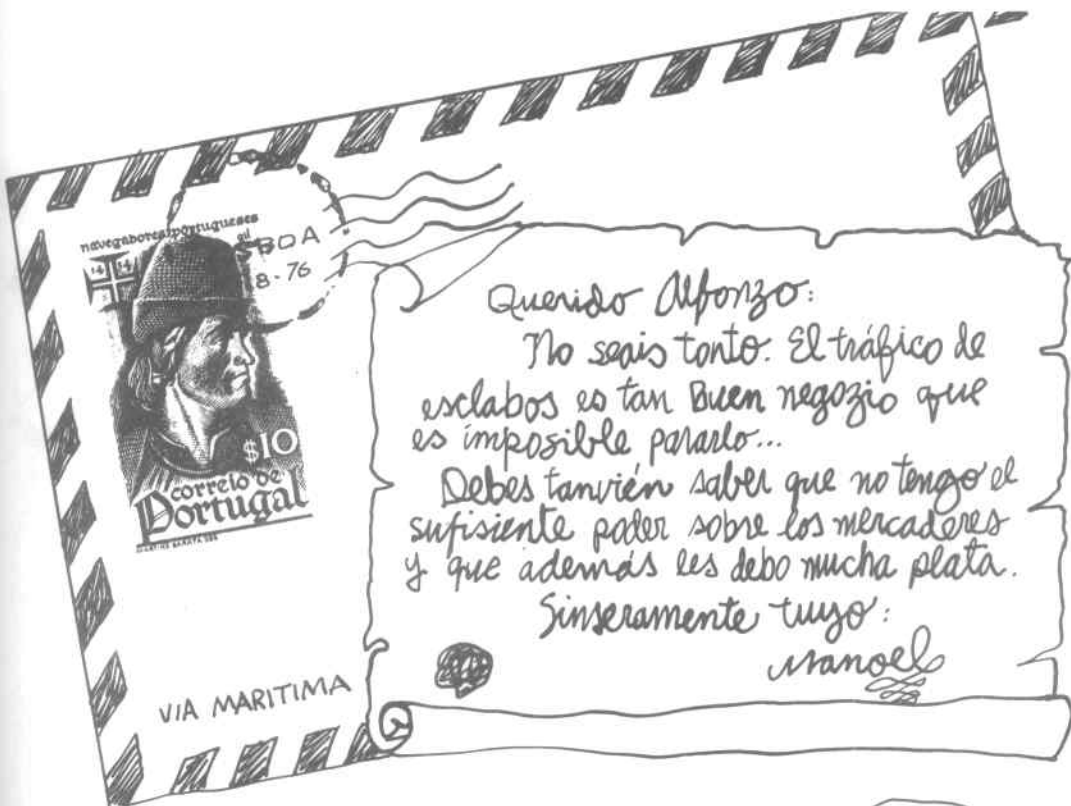 navegadores portugueses
gil
SBOA
8-76
$10
correio de
Portugal
VIA MARITIMA
Querido Alfonzo:
No seais tonto. El tráfico de
esclabos es tan Buen negozio que
es imposible pararlo...
Debes tanvién saber que no tengo el
sufisiente poder sobre los mercaderes
y que además les debo mucha plata.
Sinseramente tuyo:
Manoel